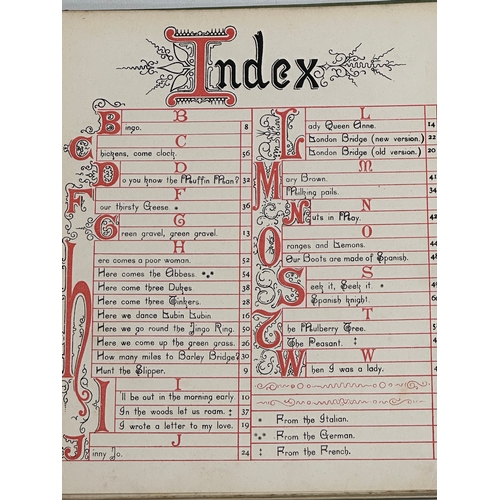 Index
B
Bingo. 8
C
Chickens, come clock. 56
D
Do you know the Muffin Man? 32
F
Four thirsty Geese. * 36
G
Green gravel, green gravel. 13
H
Here comes a poor woman. 52
Here comes the Abbess. *** 54
Here come three Dukes 38
Here come three Tinkers. 28
Here we dance Lubin Lubin 16
Here we go round the Jingo Ring. 50
Here we come up the green grass. 26
How many miles to Barley Bridge? 30
Hunt the Slipper. 9
I
I'll be out in the morning early. 10
In the woods let us roam. ‡ 37
I wrote a letter to my love. 19
J
Jinny Jo. 24
L
Lady Queen Anne. 14
London Bridge (new version.) 22
London Bridge (old version) 20
M
Mary Brown. 41
Milking pails. 34
N
Nuts in May.
O
Oranges and Lemons.
Our Boots are made of Spanish.
S
Seek it, Seek it. *
Spanish knight.
T
The Mulberry Tree.
The Peasant. ‡
W
When I was a lady.
* From the Italian.
*** From the German.
‡ From the French.